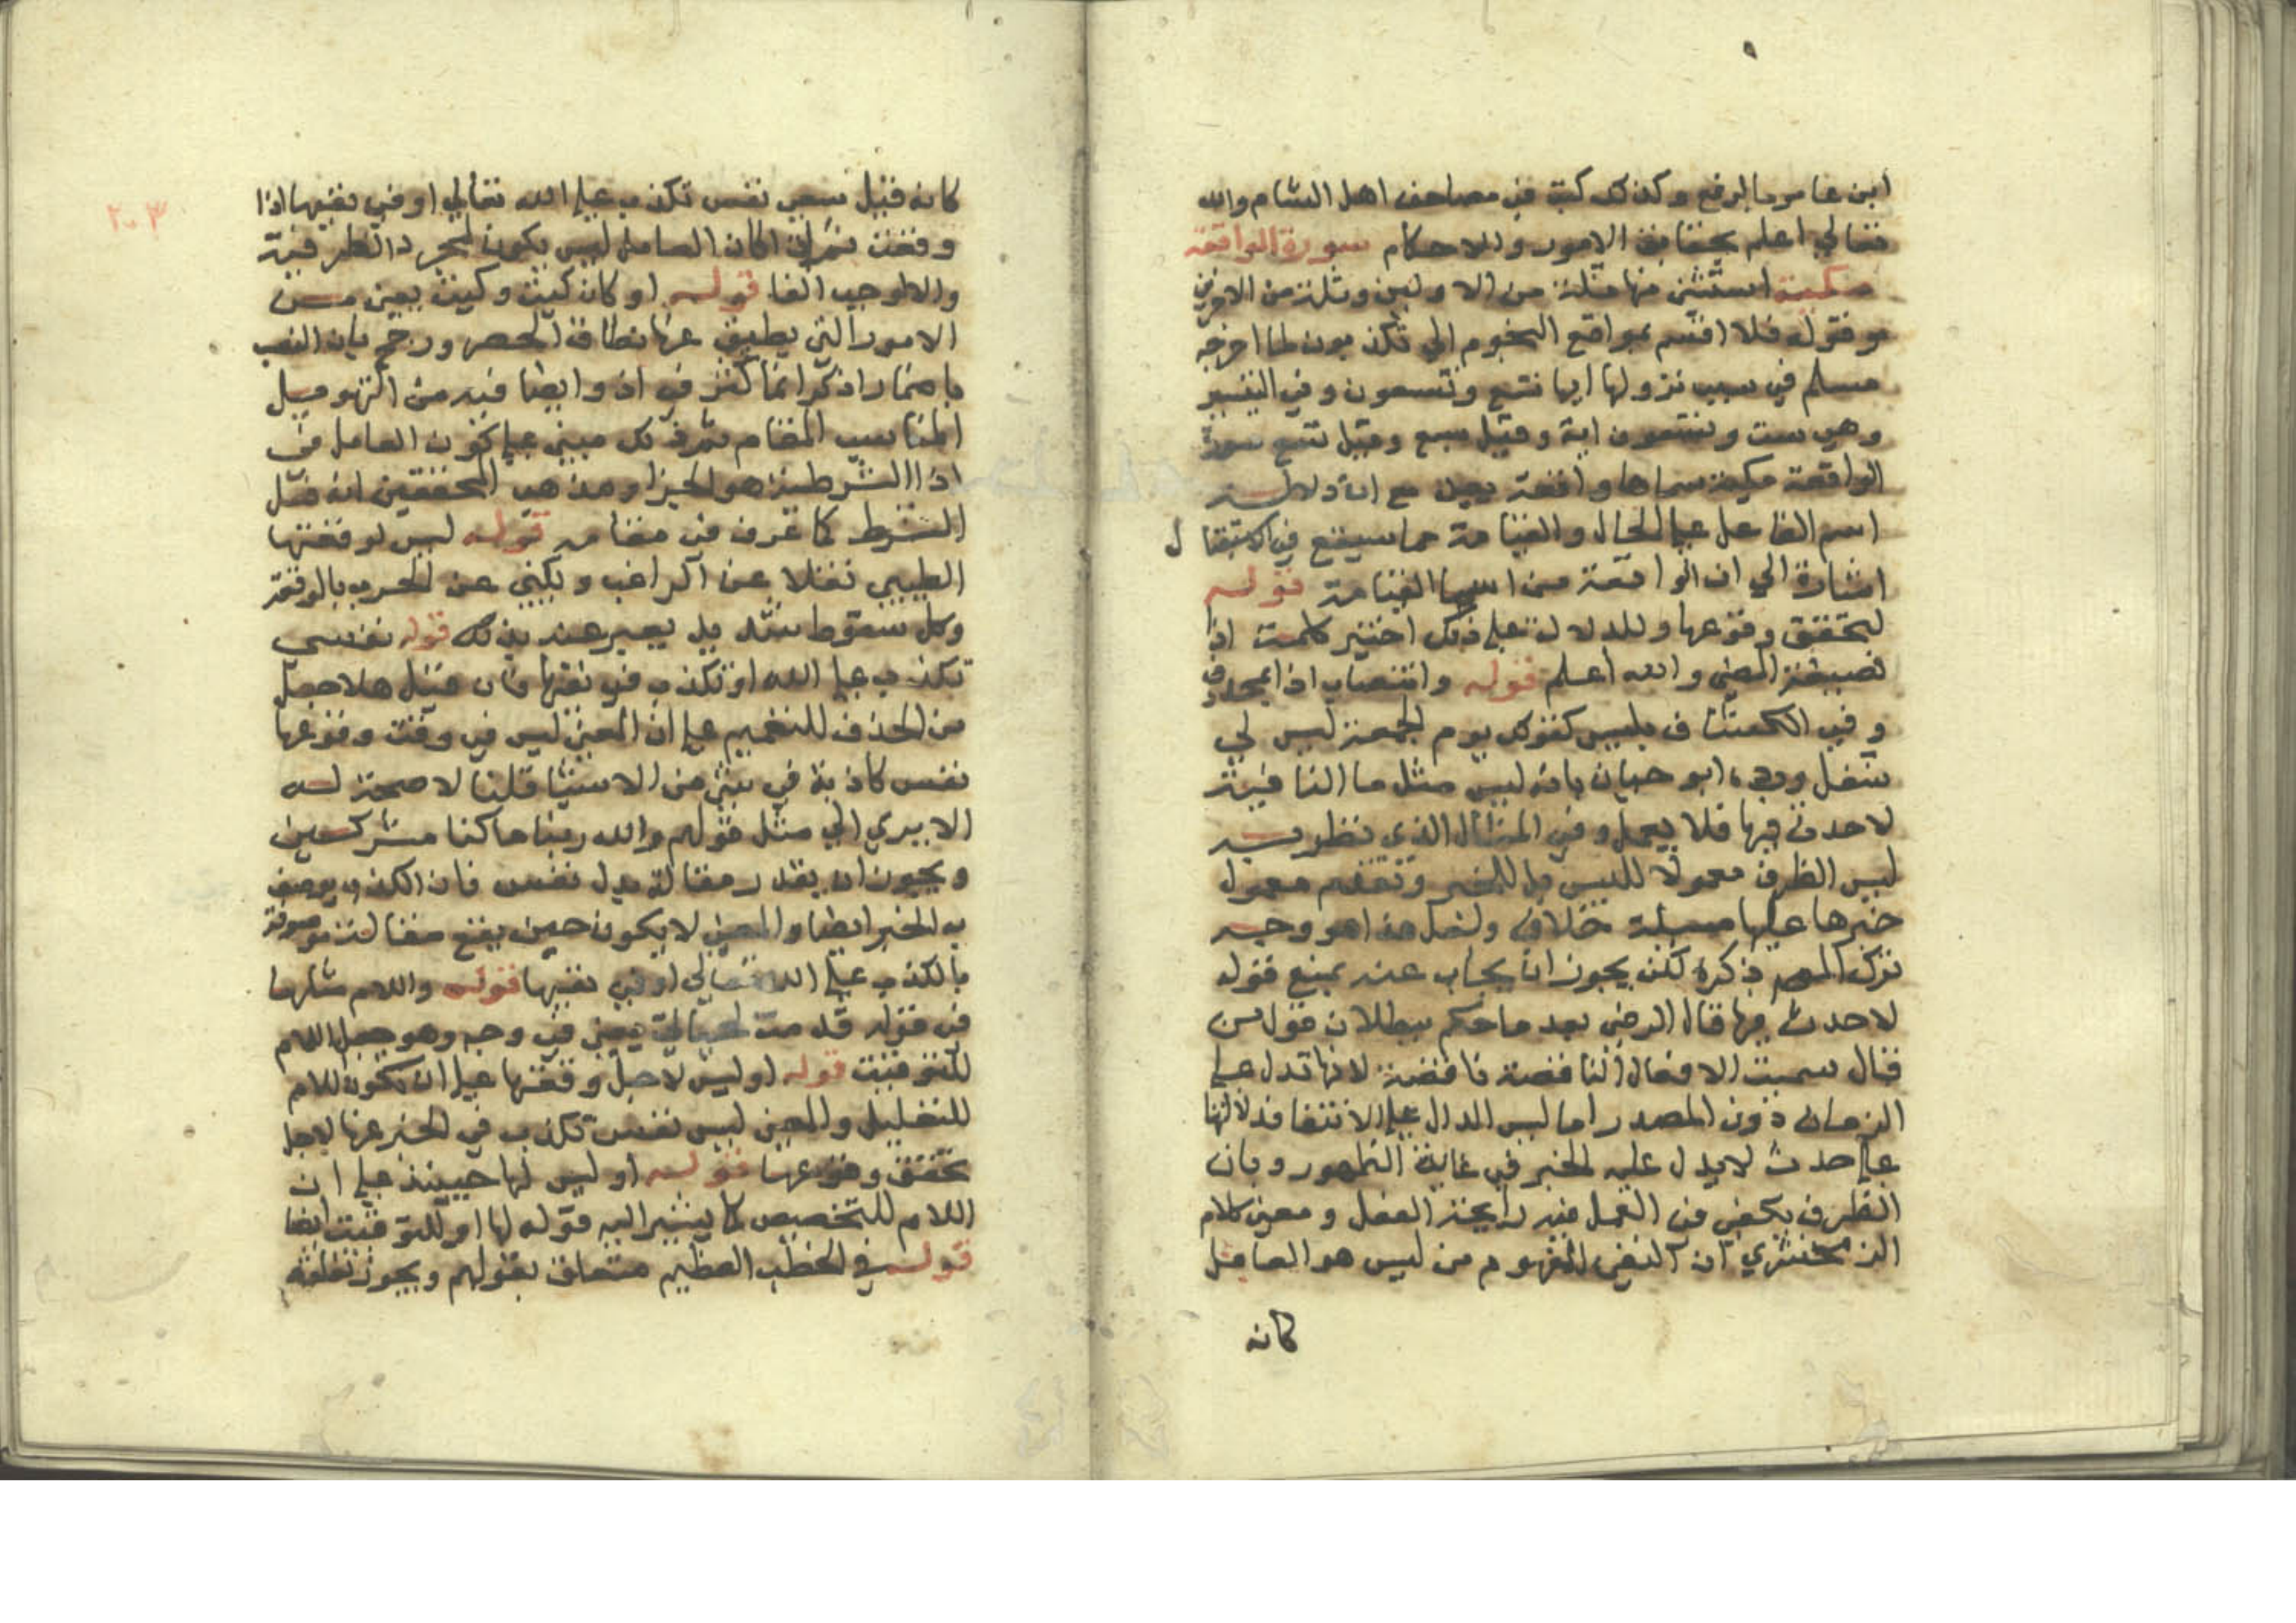 ابن عامر بالرفع وكذلك كتب في مصاحف اهل الشام والله
تعالي اعلم بحقايق الامور وللاحكام سورة الواقعة
مكية استثني منها ثلة من الاولين وثلة من الاخرين
وقوله فلا اقسم بمواقع النجوم الي تكذبون لما اخرجه
مسلم في سبب نزولها ايها تسع وتسعون وفي التيسير
وهي ست وتسعون اية وقيل سبع وقيل تسع سورة
الواقعة مكية سماها واقعة مع ان دلالة
اسم الفاعل علي الحال والقيامة مما سيقع في الاستقبا ل
اشارة الي ان الواقعة من اسما القيامة قوله
لتحقق وقوعها وللدلالة علي ذلك اختير كلمة اذا
بصيغة المضي والله اعلم قوله وانتصاب اذا بمحذوف
وفي الكشاف بليس كقولك يوم الجمعة ليس لي
شغل ورده ابو حيان بانه ليس مثل ما النافية
لا حدث فيها فلا يعمل وفي المثال الذي نظر به
ليس الظرف معمولا لليس بل للخبر وتقدم معمول
خبرها عليها مسئلة خلاف ولعل هذا هو وجه
ترك المص ذكره لكن يجوز ان يجاب عنه بمنع قوله
لا حدث فيها قال الرضي بعد ما حكم ببطلان قول من
قال سميت الافعال الناقصة ناقصة لانها تدل علي
الزمان دون المصدر اما ليس الدال علي الانتفا فدلالتها
علي حدث لا يدل عليه الخبر في غاية الظهور وبان
الظرف يكفي في العمل فيه رايحة الفعل ومعني كلام
الزمخشري ان النفي المفهوم من ليس هو العامل
كانه
٢٠٣
كانه قيل نفس تكذب علي الله تعالي او في نفيها اذا
وقعت ثم ان كان العامل ليس يكون لمجرد الظرفية
والا لوجب الفا قوله او كان كيت وكيت يعني من
الامور التي يطيق عنها نطاق الحصر ورجح بان النصب
باضمار اذكر انما كثر في اذ وايضا فيه من التهويل
المناسب المقام ثم ذلك مبني علي كون العامل في
اذا الشرطية هو الجزا ومذهب المحققين انه فعل
الشرط كما عرف في مقامه قوله ليس لوقعتها
الطيبي نقلا عن الراغب ويكني عن الحرب بالوقعة
وكل سقوط شديد يعبر عنه بذلك قوله نفس
تكذب علي الله او تكذب في نفيها فان قيل هلا حمل
من الحذف للتعميم علي ان المعني ليس في وقت وقوعها
نفس كاذبة في شي من الاشيا قلنا لا صحة له
الا يري الي مثل قولهم والله ربنا ما كنا مشركين
ويجوز ان يقدر مقالة بدل نفس فان الكذب يوصف
به الخبر ايضا والمعني لا يكون حين يقع مقالة موصوفة
بالكذب علي الله تعالي او في نفيها قوله واللام مثلها
في قوله قدمت لحياتي يعني في وجه وهو جعل اللام
للتوقيت قوله او ليس لاجل وقعتها علي ان تكون اللام
للتعليل والمعني ليس نفس تكذب في الخبر عنها لاجل
تحقق وقوعها قوله او ليس لها حينئذ علي ان
اللام للتخصيص كما يشير اليه قوله لها او للتوقيت ايضا
قوله في الخطب العظيم متعلق بقولهم ويجوز تعلقه